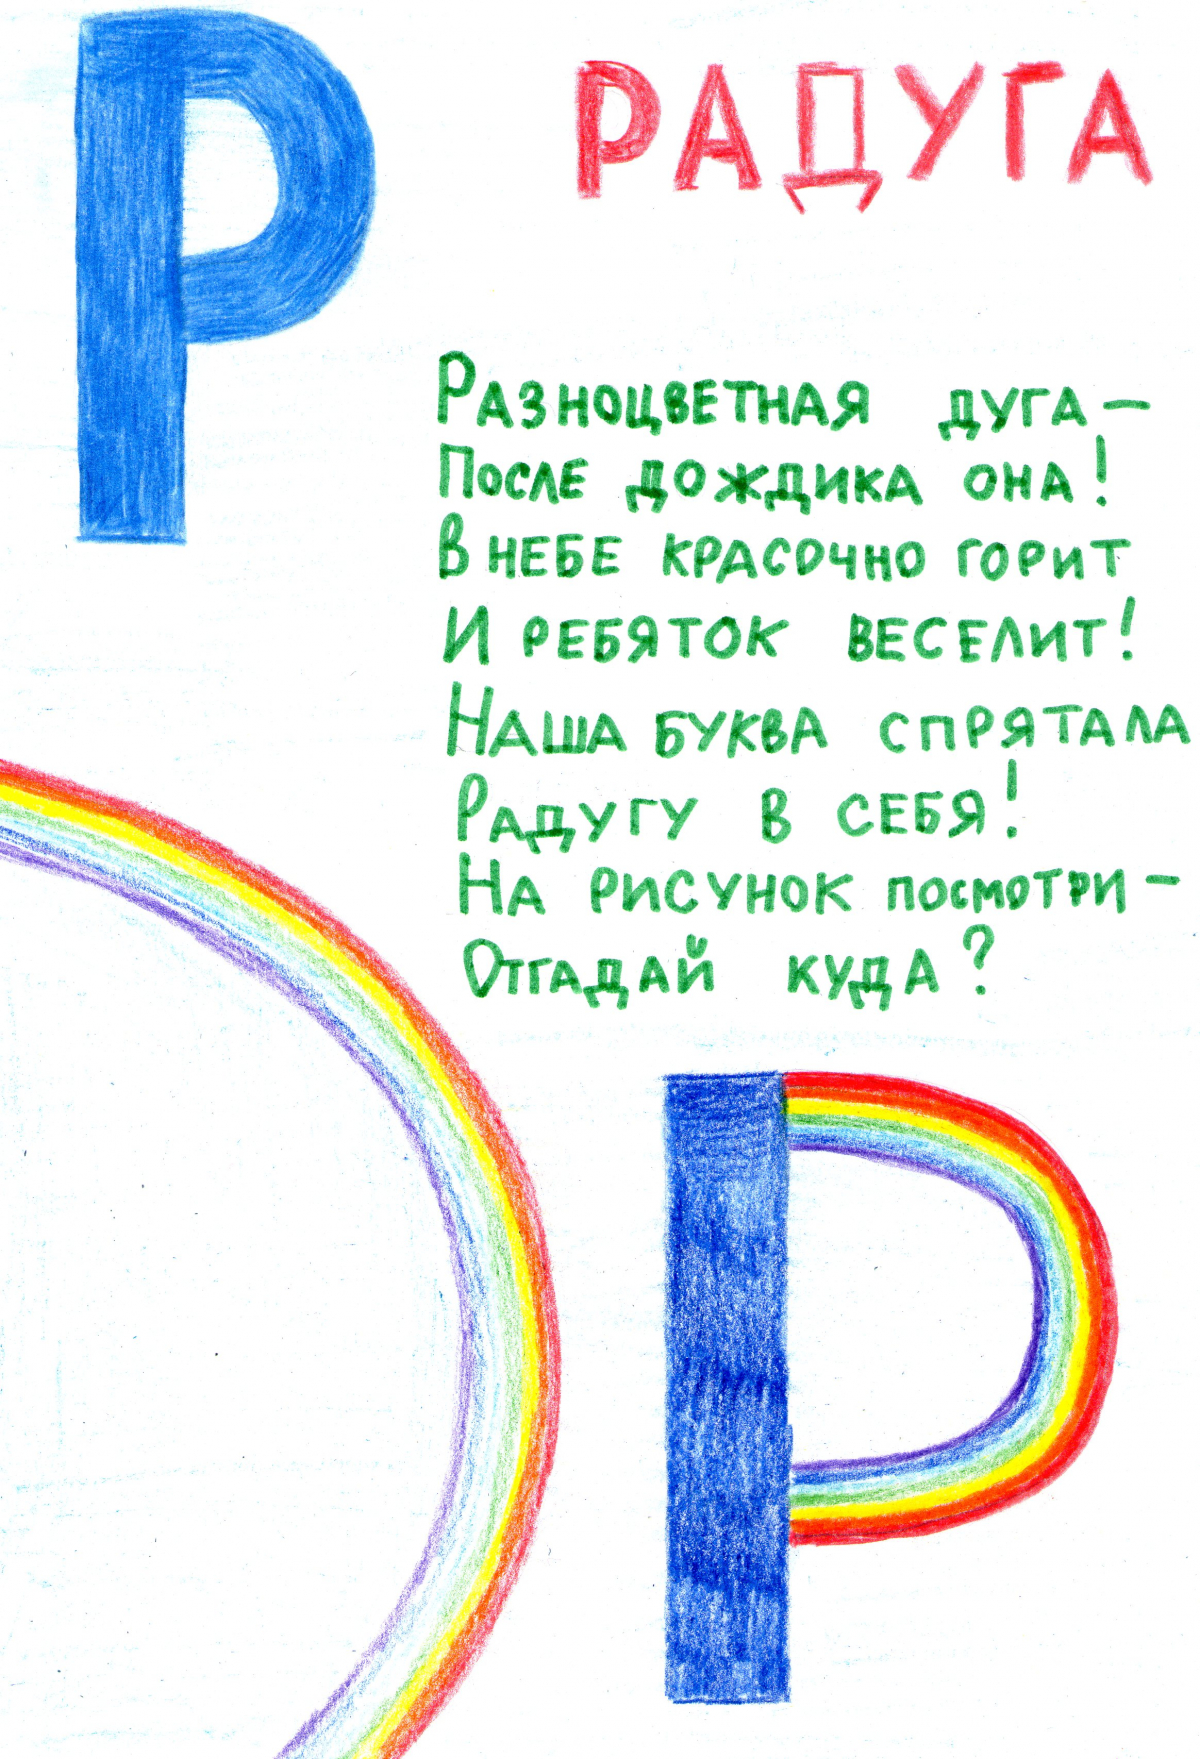 Р
РАДУГА
РАЗНОЦВЕТНАЯ ДУГА —
ПОСЛЕ ДОЖДИКА ОНА!
В НЕБЕ КРАСОЧНО ГОРИТ
И РЕБЯТОК ВЕСЕЛИТ!
НАША БУКВА СПРЯТАЛА
РАДУГУ В СЕБЯ!
НА РИСУНОК ПОСМОТРИ —
ОТГАДАЙ КУДА?
Р